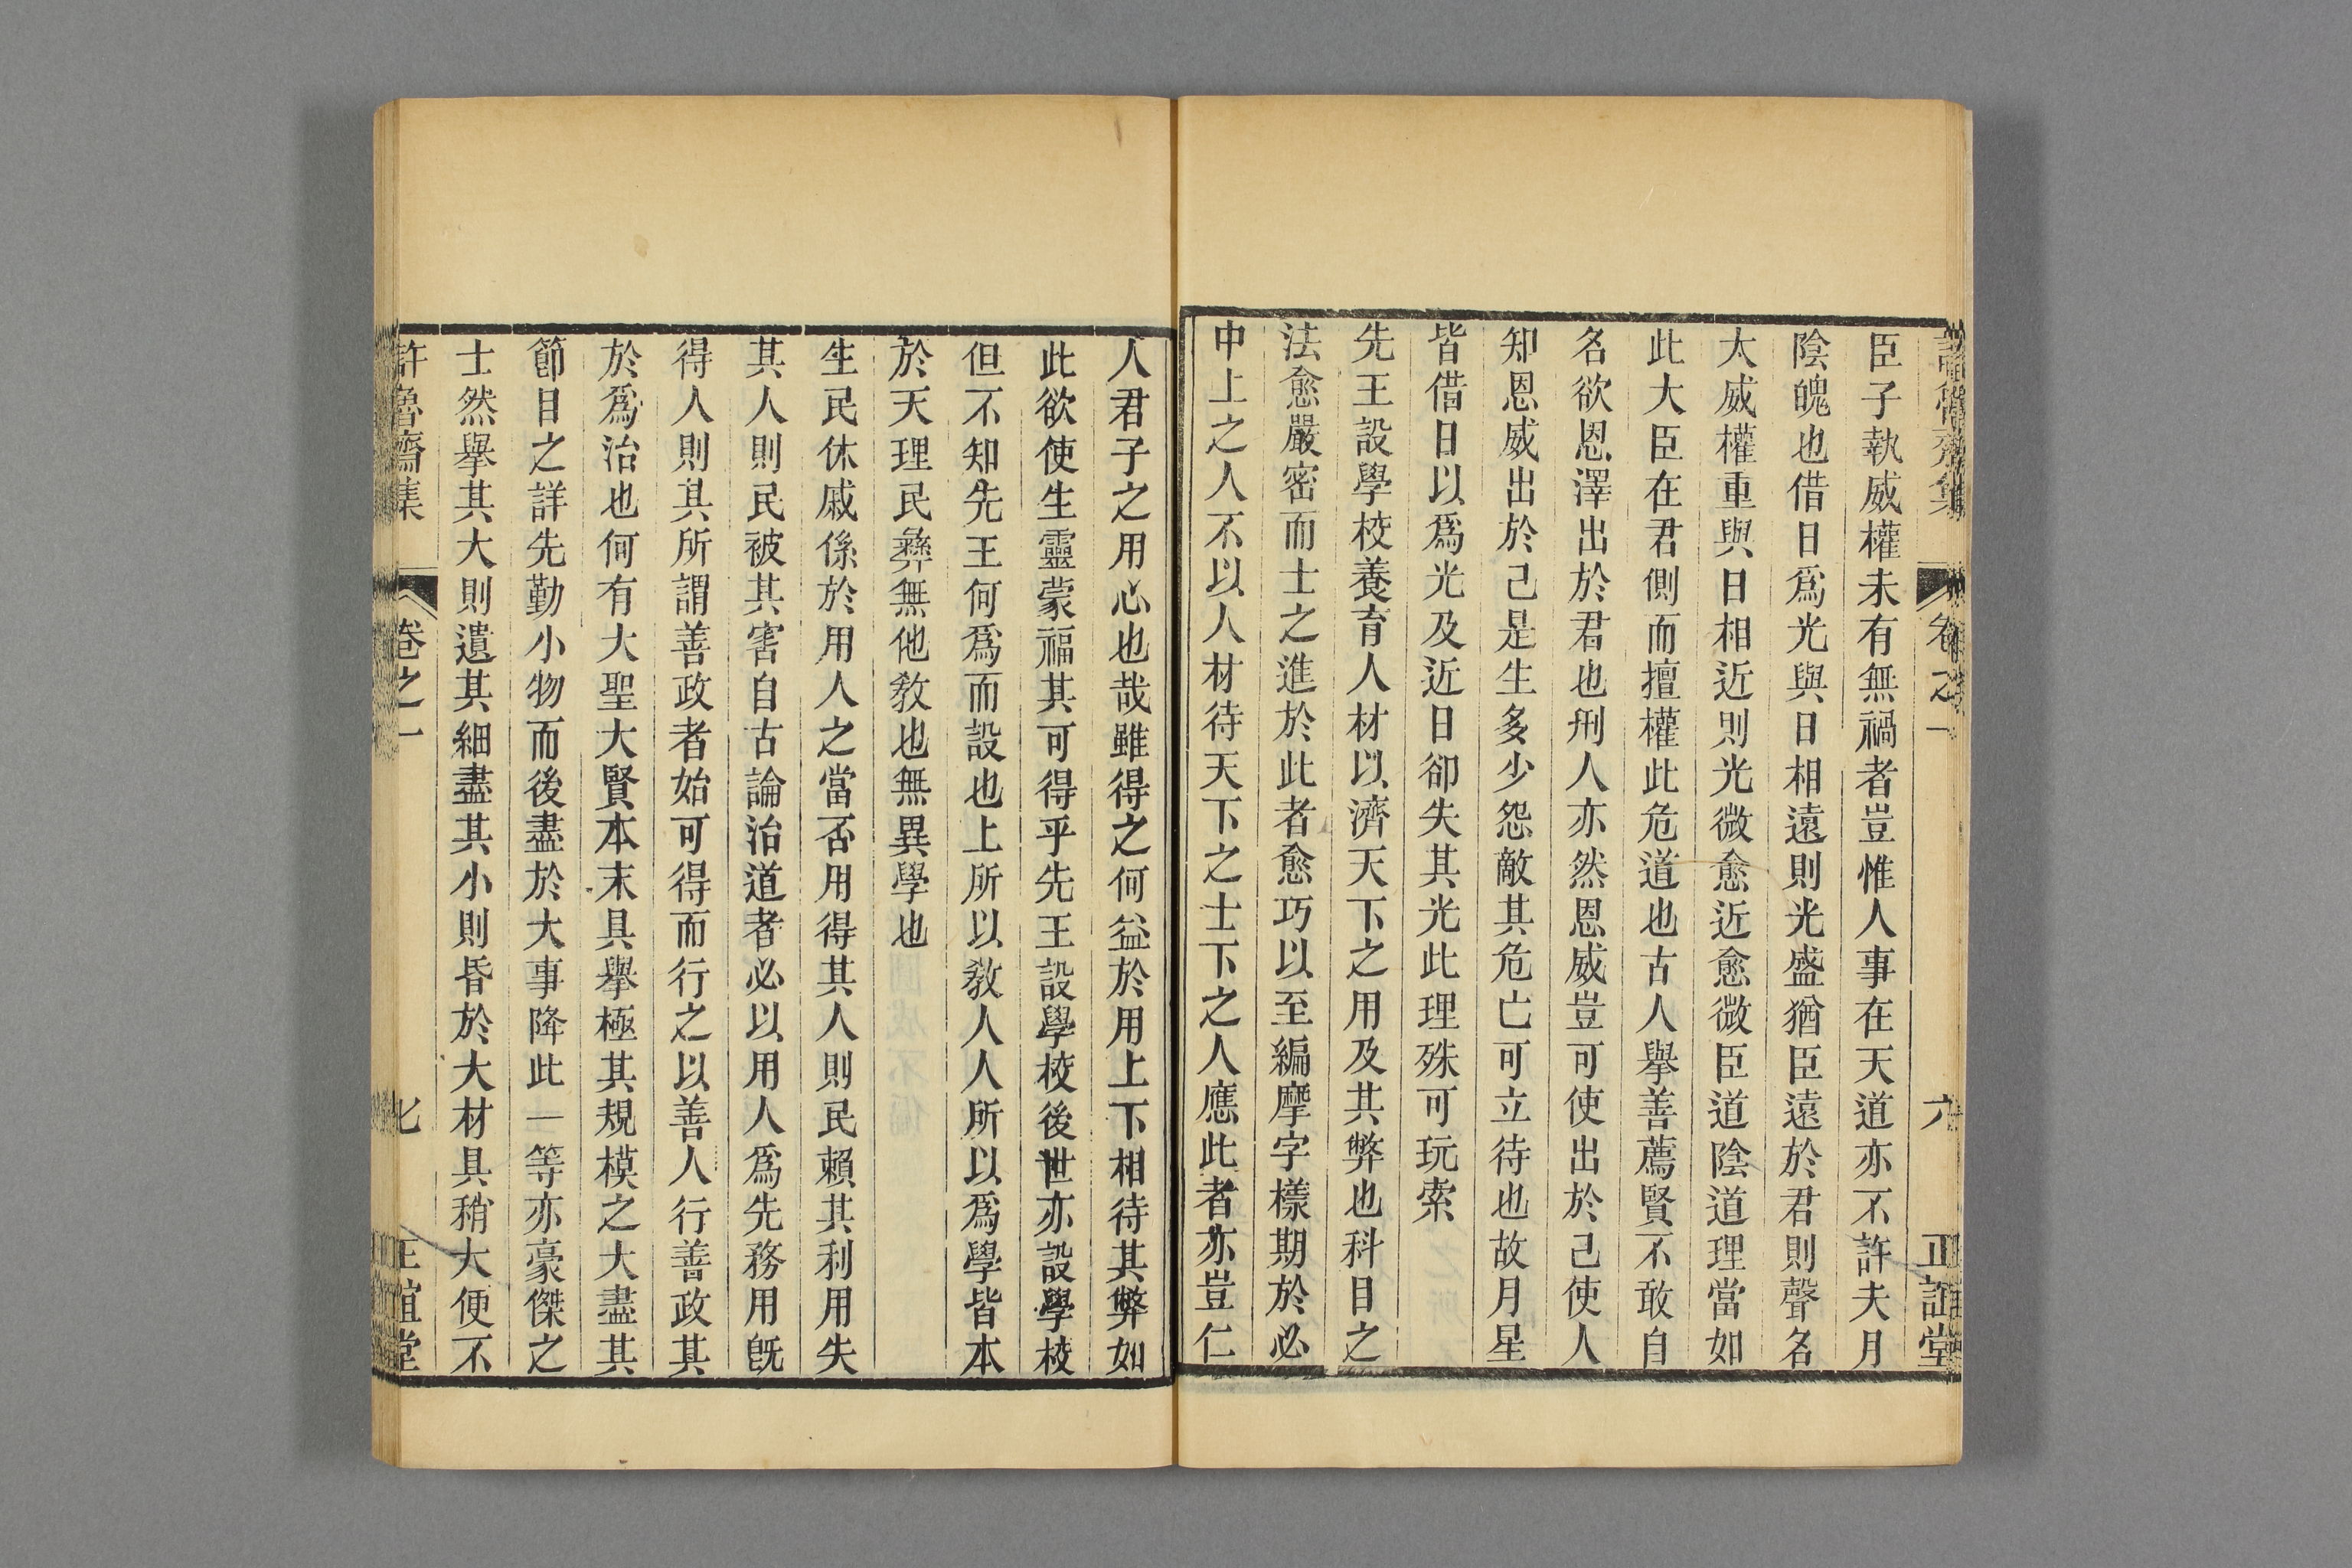 許魯齋集
卷之一
六
正誼堂
臣子執威權未有無禍者豈惟人事在天道亦不許夫月
陰魄也借日爲光與日相遠則光盛猶臣遠於君則聲名
大威權重與日相近則光微愈近愈微臣道陰道理當如
此大臣在君側而擅權此危道也古人舉善薦賢不敢自
名欲恩澤出於君也刑人亦然恩威豈可使出於己使人
知恩威出於己是生多少怨敵其危亡可立待也故月星
皆借日以爲光及近日卻失其光此理殊可玩索
先王設學校養育人材以濟天下之用及其弊也科目之
法愈嚴密而士之進於此者愈巧以至編摩字樣期於必
中上之人不以人材待天下之士下之人應此者亦豈仁
人君子之用心也哉雖得之何益於用上下相待其弊如
此欲使生靈蒙福其可得乎先王設學校後世亦設學校
但不知先王何爲而設也上所以敎人人所以爲學皆本
於天理民彝無他敎也無異學也
生民休戚係於用人之當否用得其人則民賴其利用失
其人則民被其害自古論治道者必以用人爲先務用既
得人則其所謂善政者始可得而行之以善人行善政其
於爲治也何有大聖大賢本末具舉極其規模之大盡其
節目之詳先勤小物而後盡於大事降此一等亦豪傑之
士然舉其大則遺其細盡其小則昏於大材具稍大便不
許魯齋集
卷之一
七
正誼堂